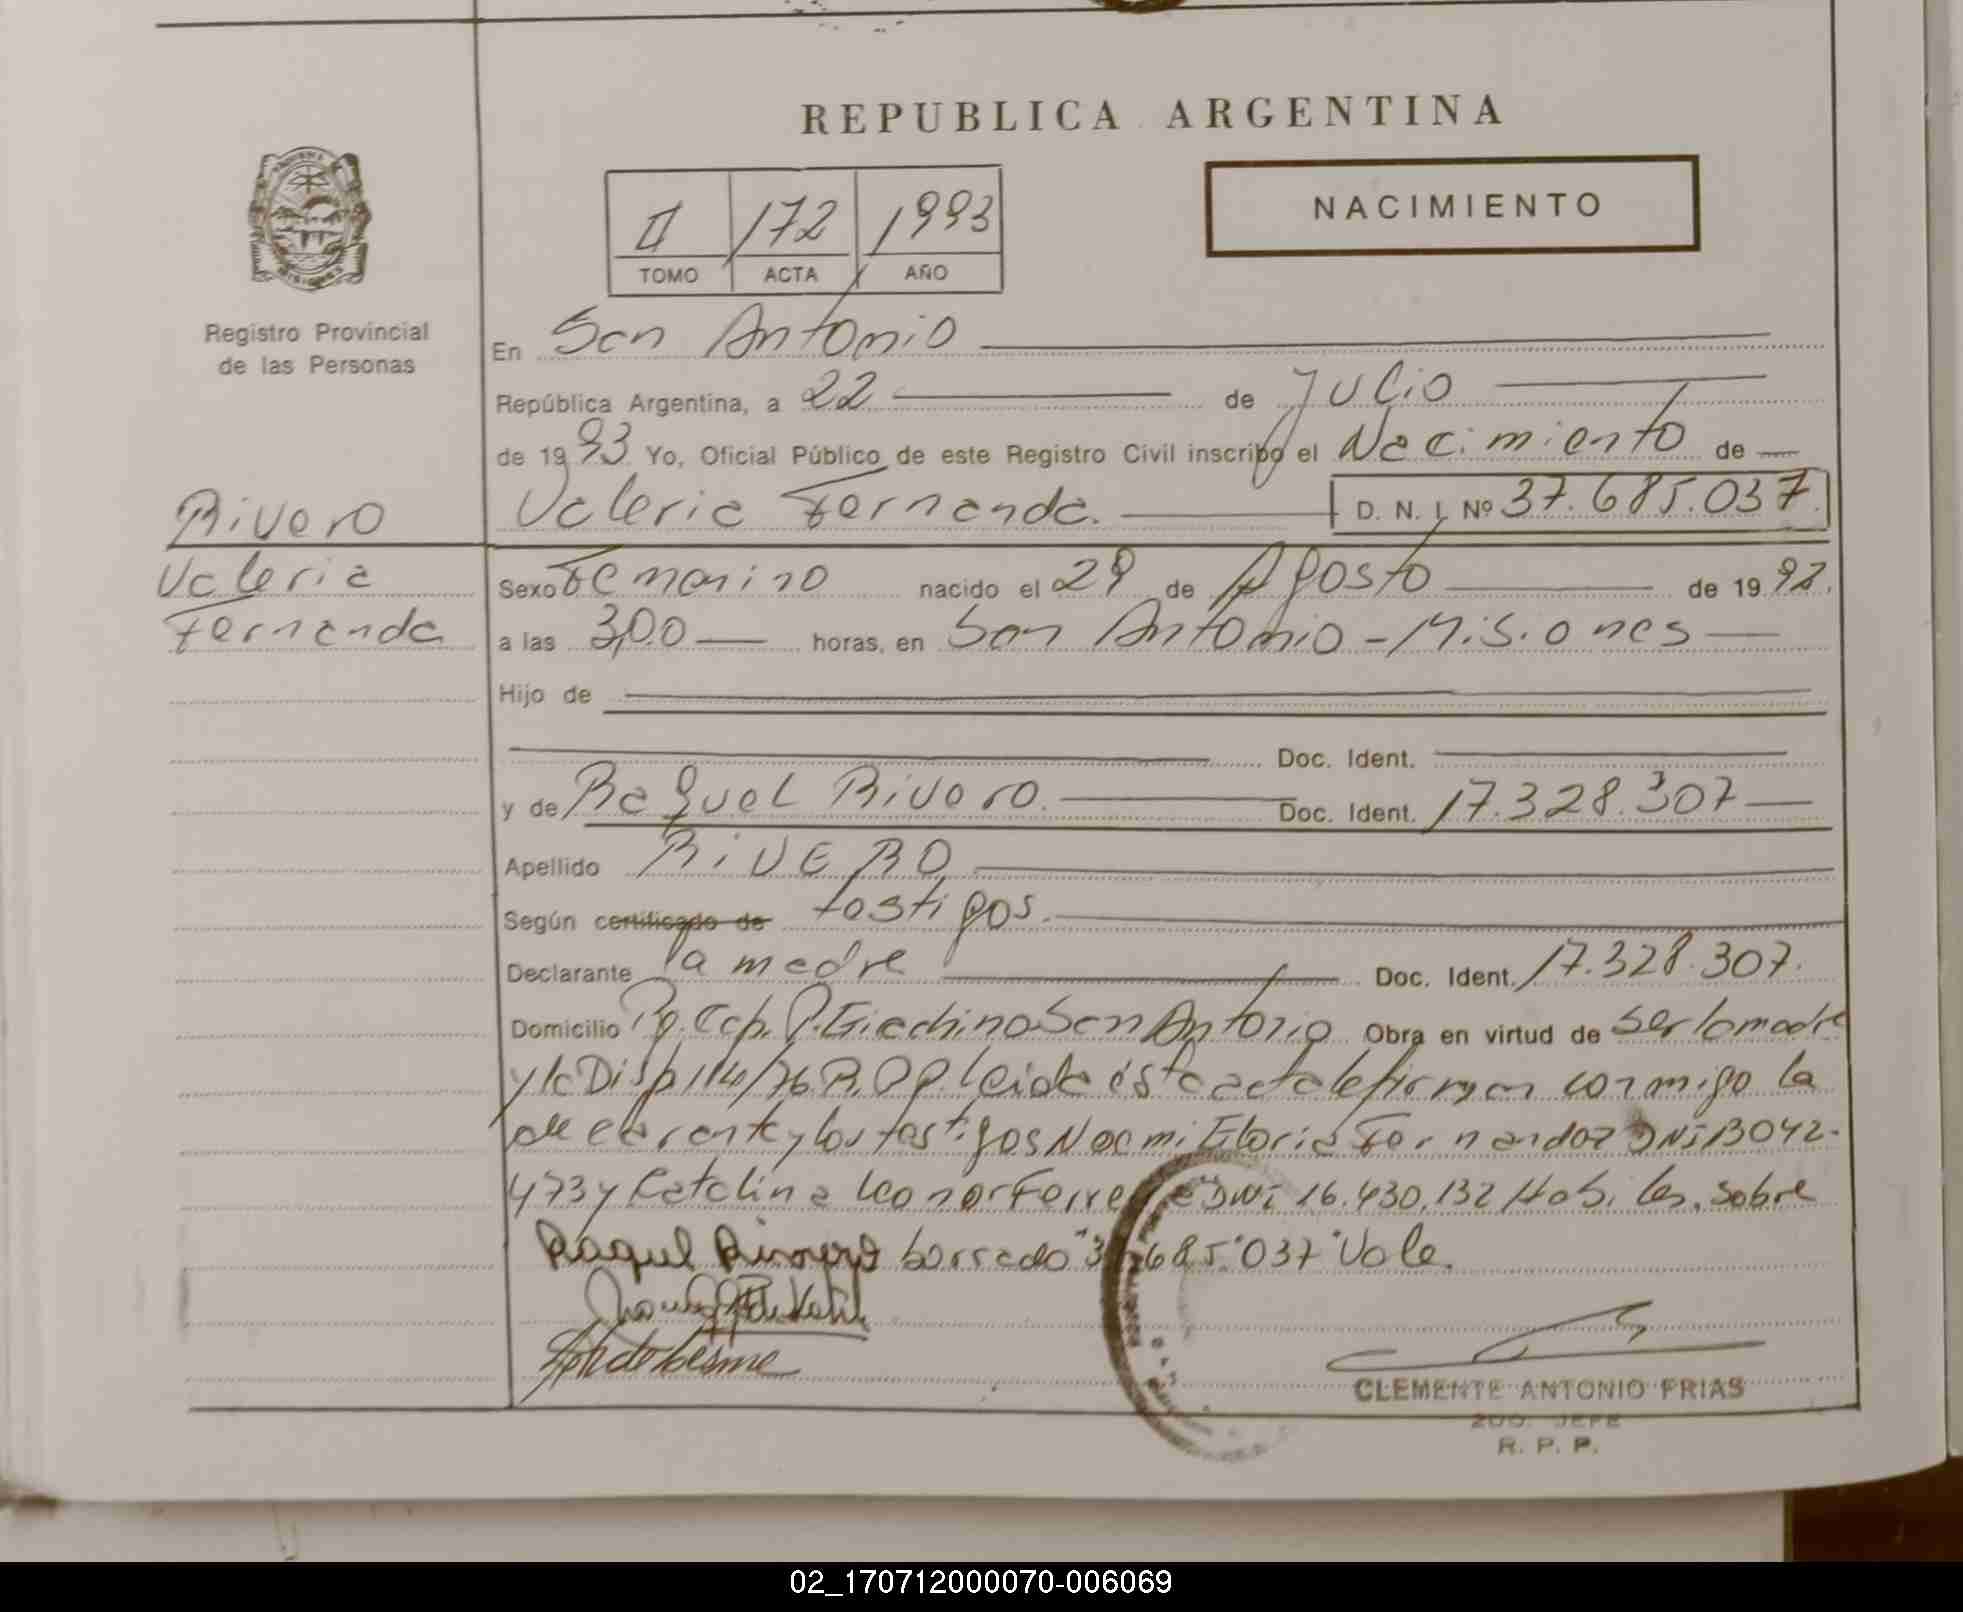 REPUBLICA ARGENTINA
NACIMIENTO
II 172 1993
TOMO ACTA AÑO
Registro Provincial
de las Personas
En San Antonio
República Argentina, a 22 de Julio
de 1993 Yo, Oficial Público de este Registro Civil inscribo el Nacimiento de
Valeria Fernanda. D. N. I. Nº 37.685.037.
Rivero
Valeria
Fernanda
Sexo Femenino nacido el 29 de Agosto de 1992.
a las 3,00 horas, en San Antonio - Misiones
Hijo de
Doc. Ident.
y de Raquel Rivero. Doc. Ident. 17.328.307
Apellido RIVERO
Según certificado de testigos.
Declarante la madre Doc. Ident. 17.328.307.
Domicilio Bº. Cap. P. Giachino San Antonio Obra en virtud de ser la madre
y la Disp 114/76 R.P.P. leida ésta acta la firman conmigo la
declarante y los testigos Noemi Gloria Fernandez DNI 13042.
473 y Catalina Leonor Ferreyra DNI 16.430.132 Habiles. sobre
Raquel Rivero borrado "37.685.037" Vale.
CLEMENTE ANTONIO FRIAS
2DO. JEFE
R. P. P.
02_170712000070-006069